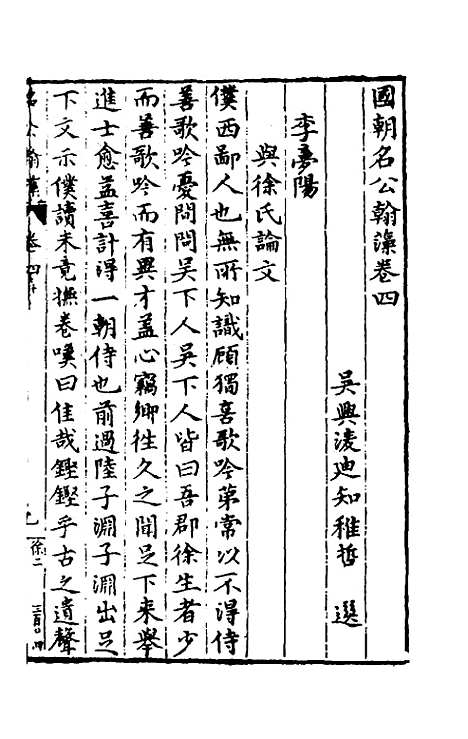 國朝名公翰藻卷四
吳興淩迪知稚哲 選
李夢陽
與徐氏論文
僕西鄙人也無所知識顧獨喜歌吟第常以不得侍
善歌吟憂問問吳下人吳下人皆曰吾郡徐生者少
而善歌吟而有異才蓋心竊鄉徃久之聞足下來舉
進士愈益喜計得一朝侍也前過陸子淵子淵出足
下文示僕讀未竟撫卷嘆曰佳哉鏗鏗乎古之遺聲
名公翰藻 卷四
徐二